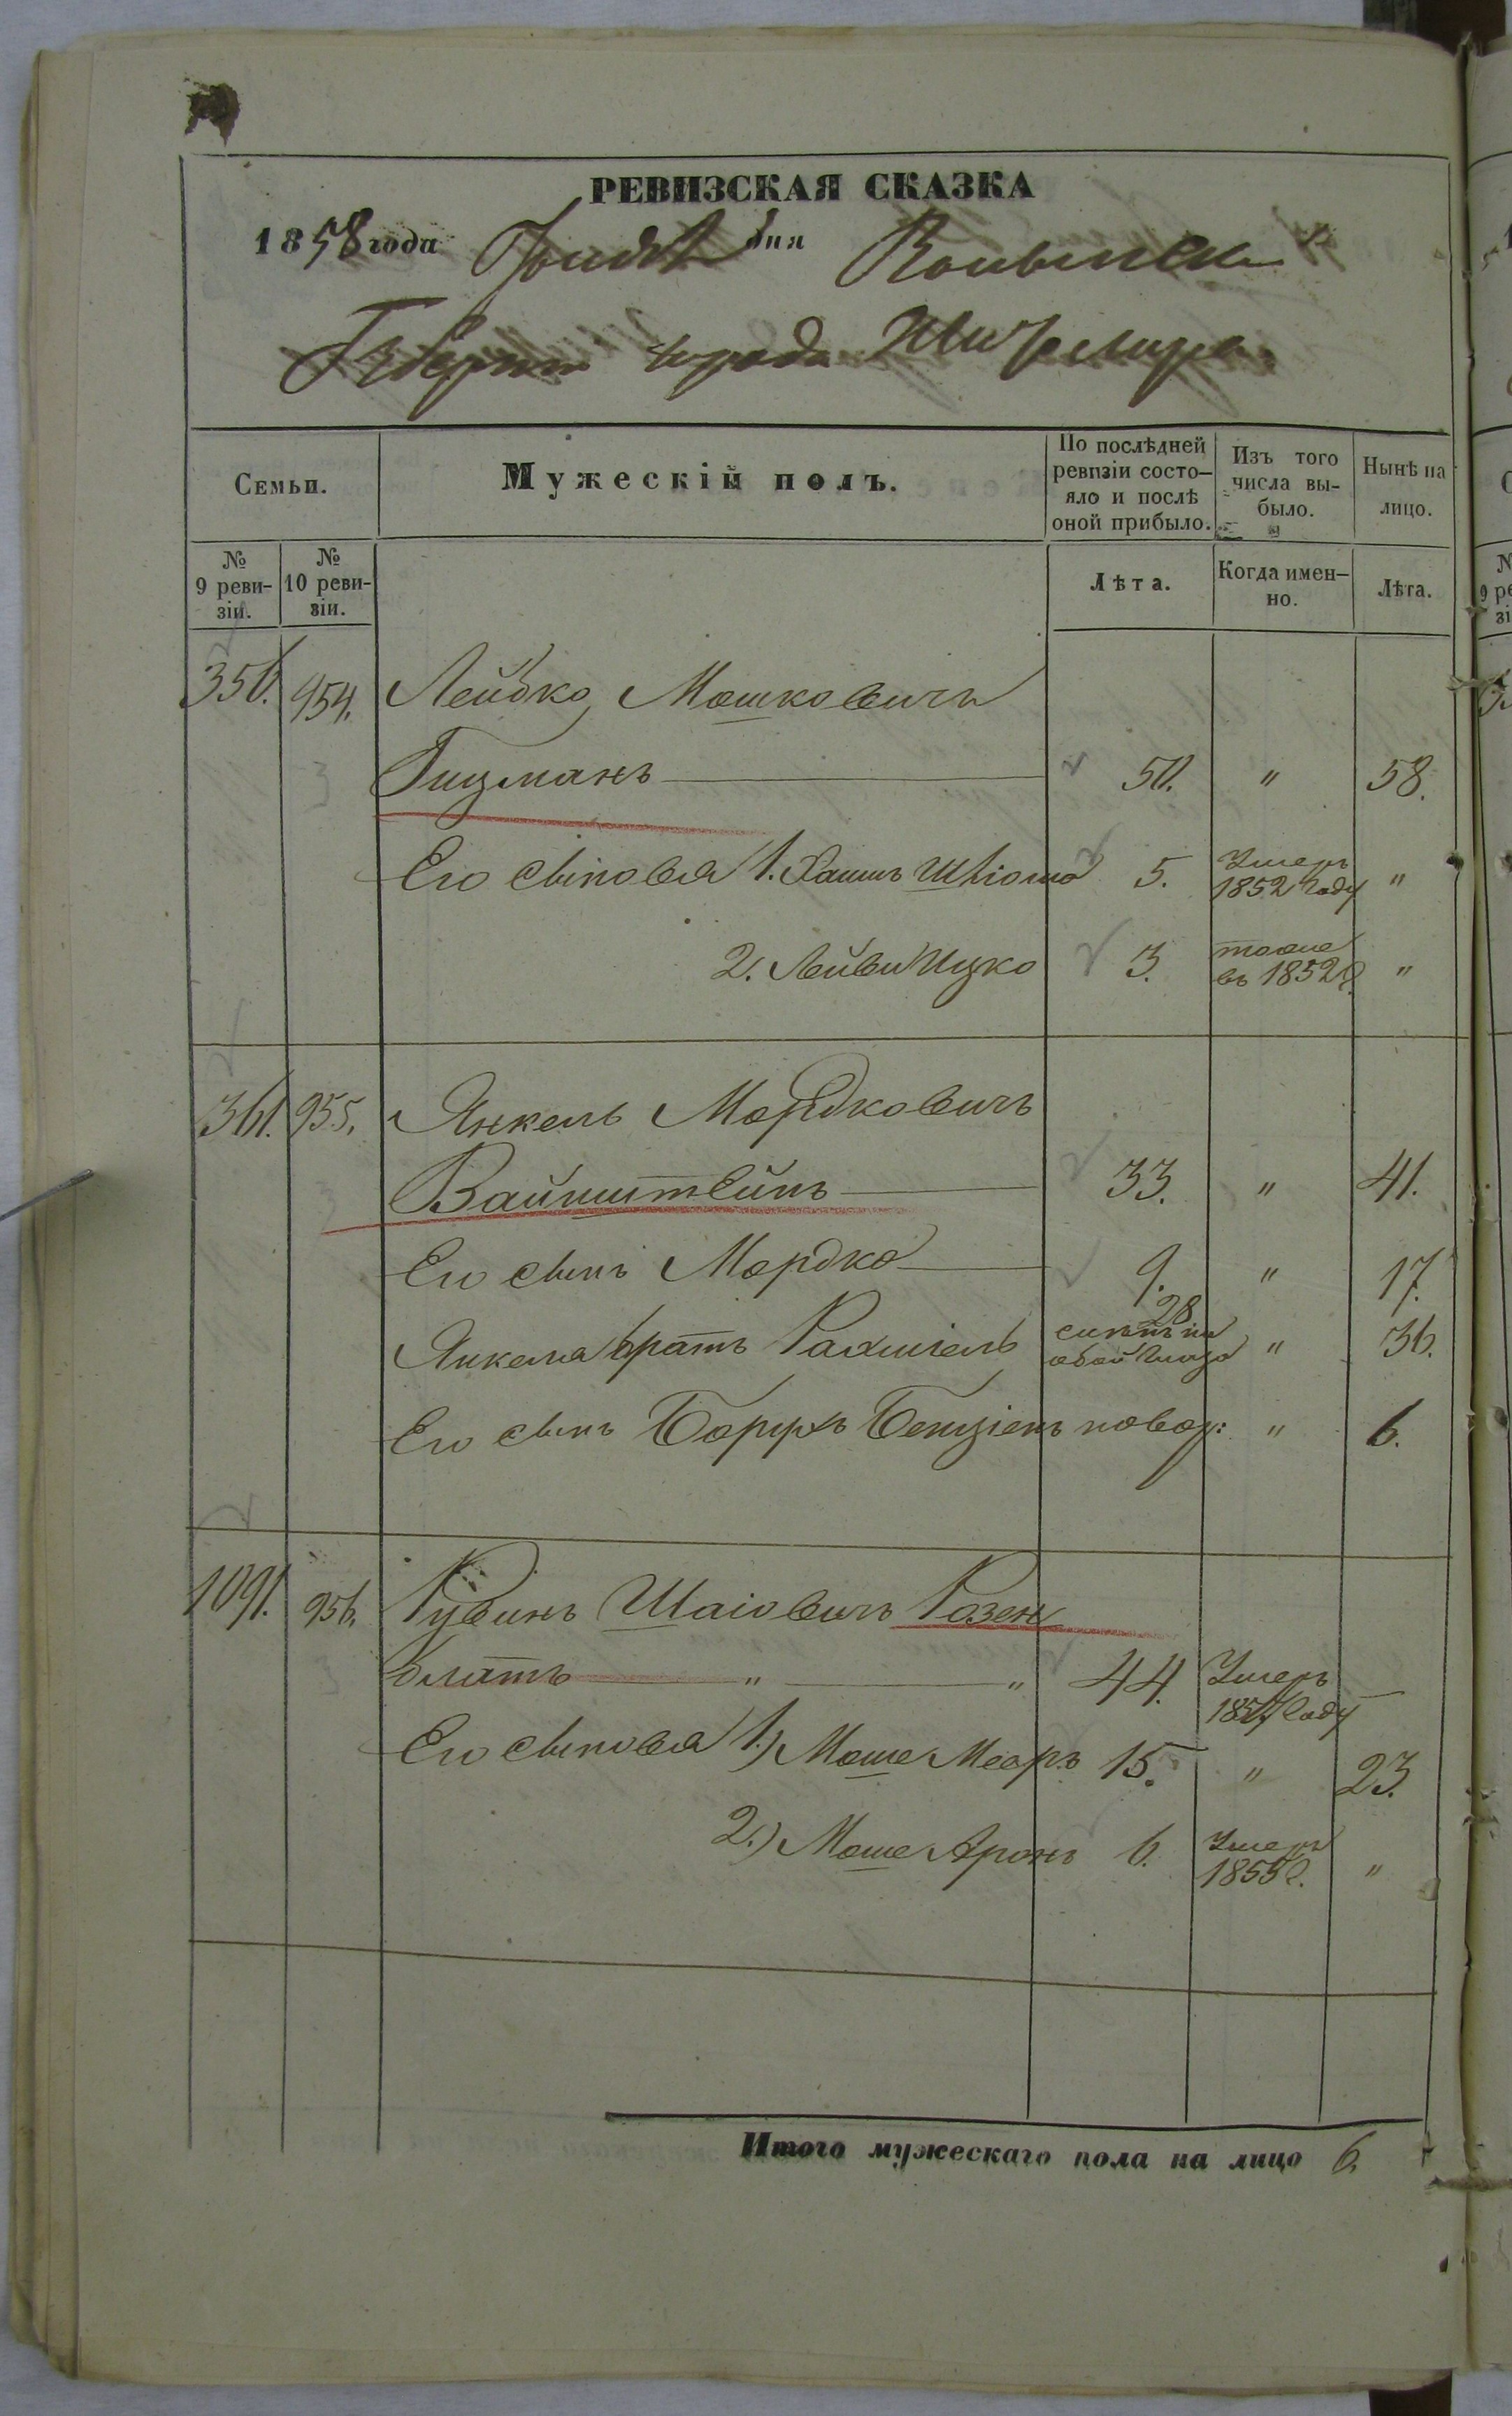 РЕВИЗСКАЯ СКАЗКА
1858 года дня Волынской
Губернии города Житомира
Семьи.
Мужескій полъ.
По послѣдней ревизіи состо-
яло и послѣ
оной прибыло.
Изъ того
числа вы-
было.
Нынѣ на
лицо.
№
9 реви-
зіи.
№
10 реви-
зіи.
Лѣта.
Когда имен-
но.
Лѣта.
954. Лейбко Мошковичъ
Гицманъ 50. " 58.
Его сыновья 1. Хаимъ Шліома 5. Умеръ 1852 году "
2. Лейви Ицко 3. тоже въ 1852 г. "
361. 955. Янкель Мордковичъ
Вайнштейнъ 33. " 41.
Его сынъ Мордко 9. " 17.
Янкеля братъ Рахміель 28 " 36.
Его сынъ Борухъ Бенціенъ новор: " 6.
1091. 956. Рувинъ Шаіовичъ Розен
блатъ " " 44. Умеръ году
Его сыновья 1.) Моше Меоръ 15. " 23.
2.) Моше Аронъ 6. Умеръ 1855 г. "
Итого мужескаго пола на лицо 6.